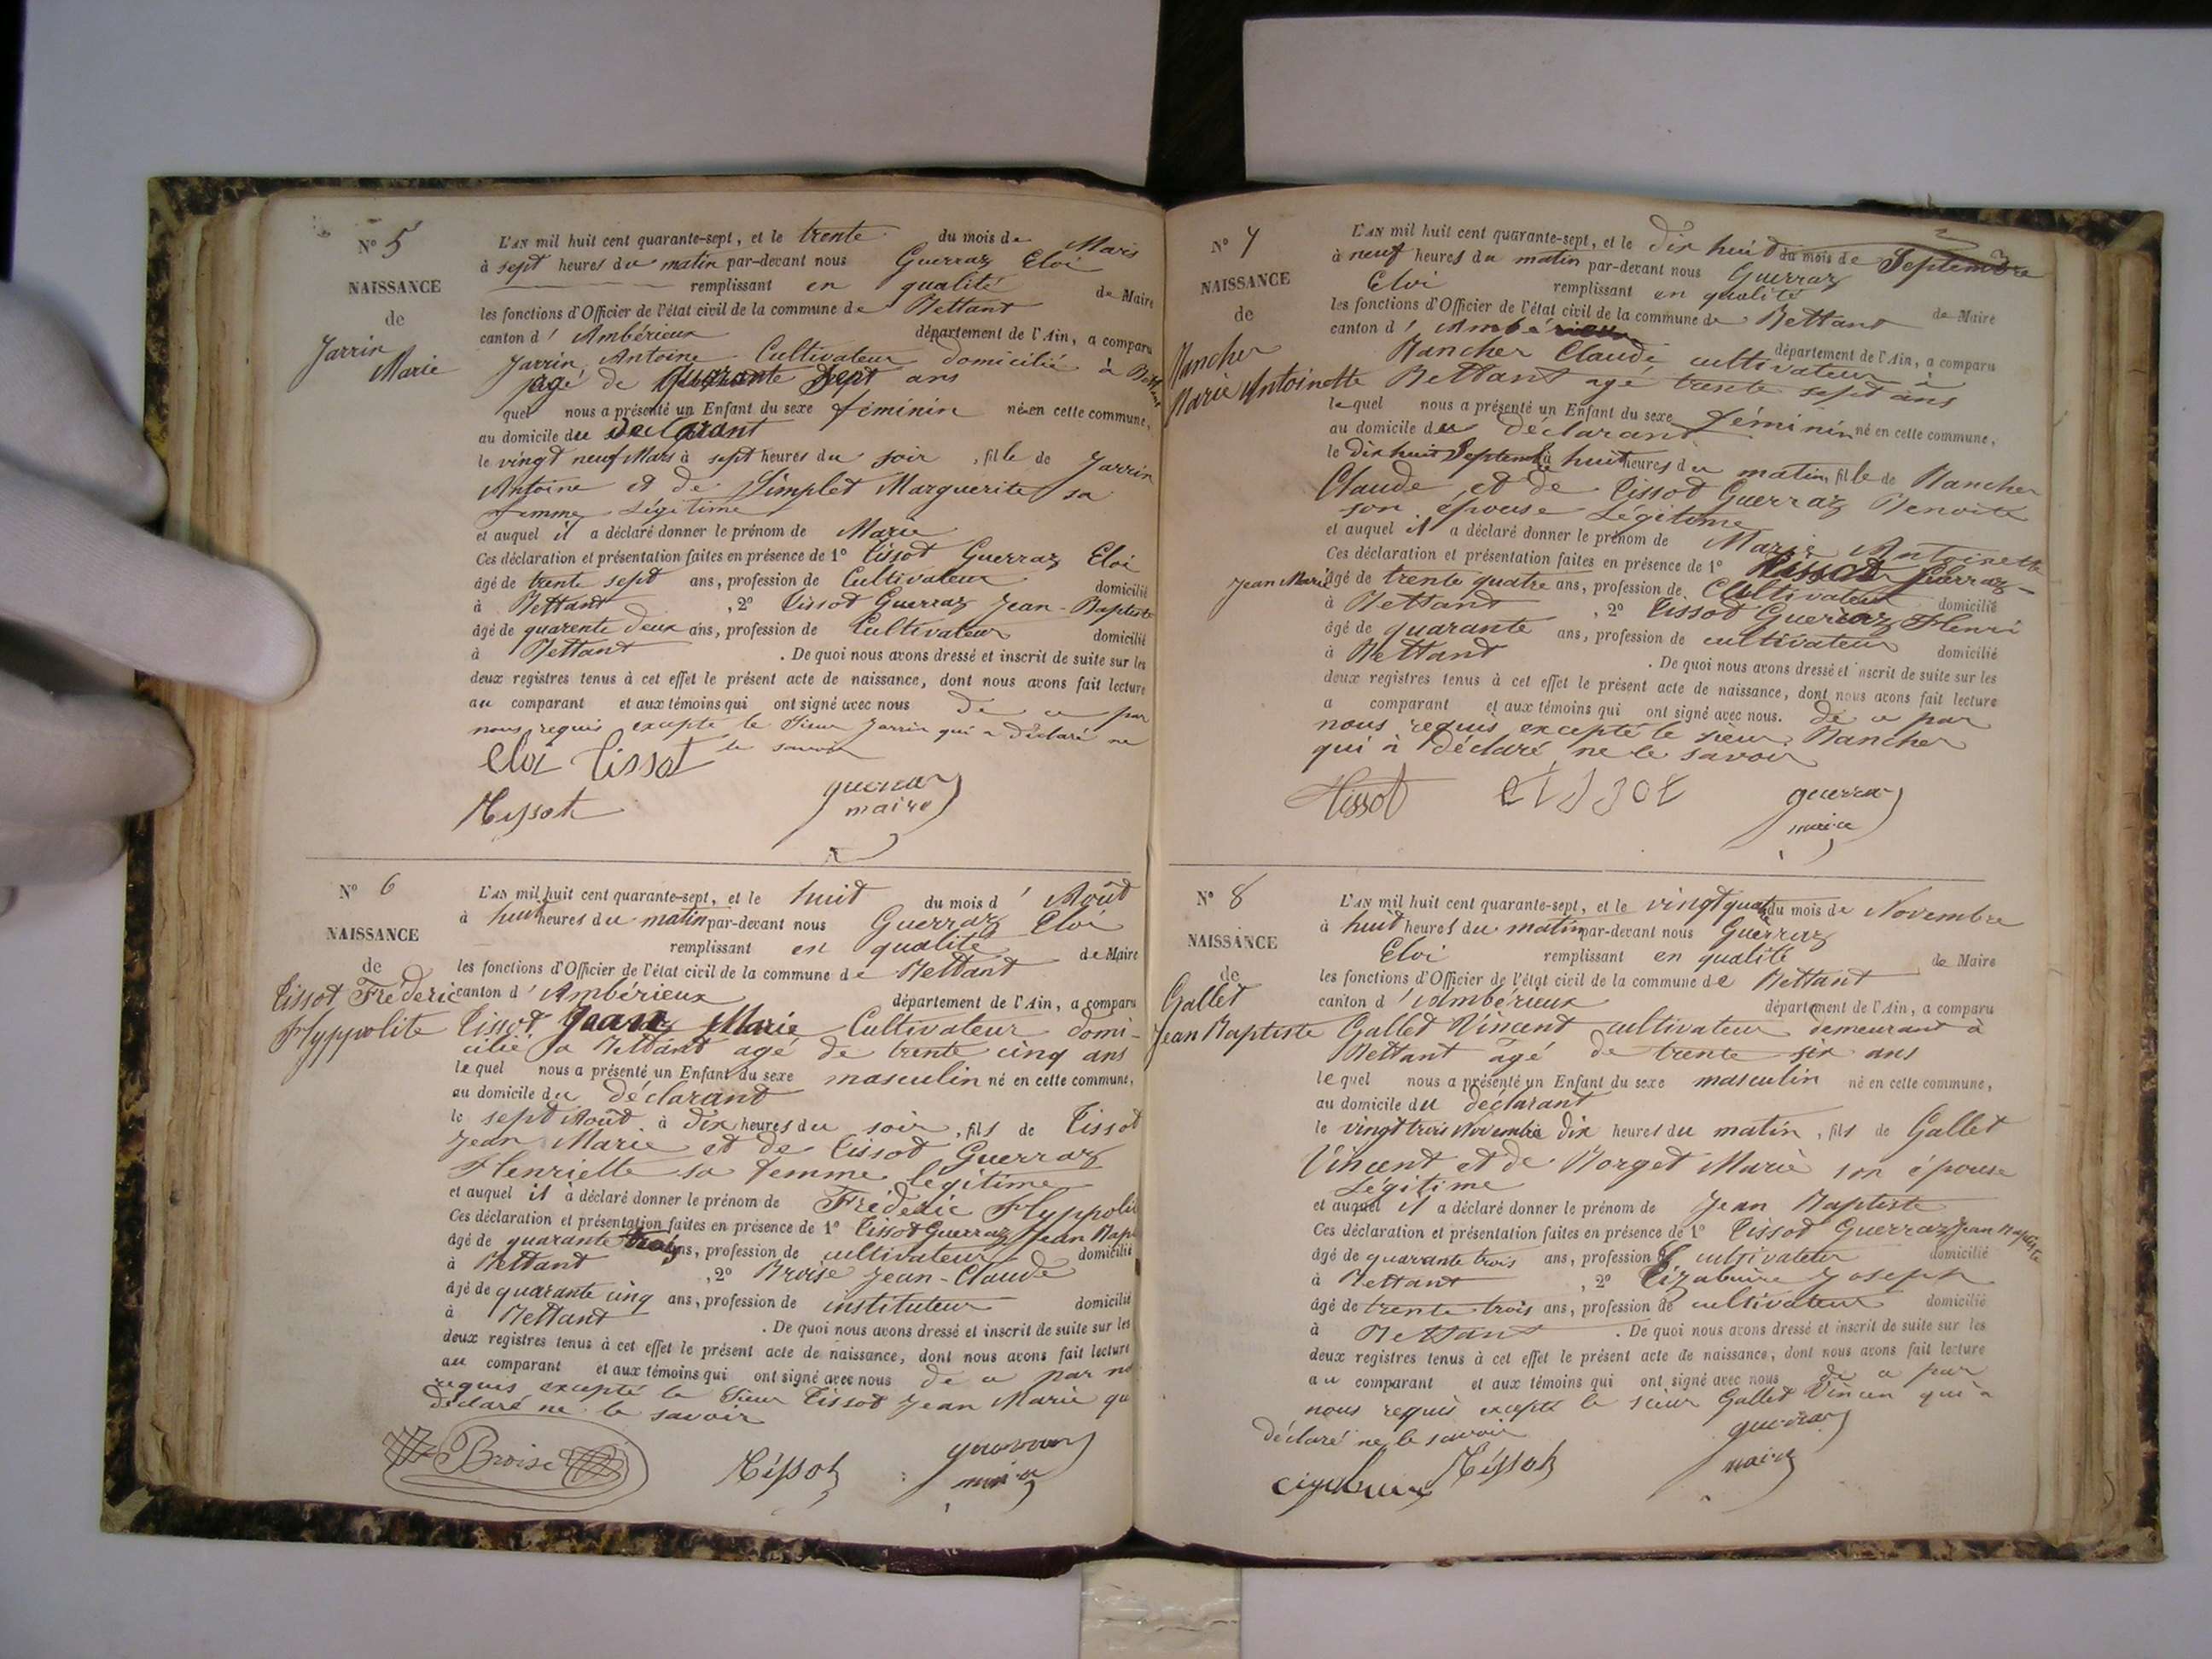 N° 5
NAISSANCE
de
Jarrin
Marie
L'AN mil huit cent quarante-sept, et le trente du mois de Mars
à sept heures du matin par-devant nous Guerraz Eloi
remplissant en qualité de Maire
les fonctions d'Officier de l'état civil de la commune de Bettant
canton d' Ambérieux département de l'Ain, a comparu
Jarrin Antoine Cultivateur domicilié à Bettant
agé de quarante sept ans
quel nous a présenté un Enfant du sexe féminin né en cette commune,
au domicile du declarant
le vingt neuf Mars à sept heures du soir , fille de Jarrin
Antoine et de Simplet Marguerite sa
femme Légitime
et auquel il a déclaré donner le prénom de Marie
Ces déclaration et présentation faites en présence de 1° Tissot Guerraz Eloi
âgé de trente sept ans, profession de Cultivateur domicilié
à Bettant , 2° Tissot Guerraz Jean-Baptiste
âgé de quarente deux ans, profession de Cultivateur domicilié
à Bettant . De quoi nous avons dressé et inscrit de suite sur les
deux registres tenus à cet effet le présent acte de naissance, dont nous avons fait lecture
au comparant et aux témoins qui ont signé avec nous de ce par
nous requis excepté le Sieur Jarrin qui a déclaré ne
le savoir
eloi tissot
guerraz
maire
Tissot
N° 6
NAISSANCE
de
Tissot Fréderic
Hyppolite
L'AN mil huit cent quarante-sept, et le huit du mois d' Août
à huit heures du matin par-devant nous Guerraz Eloi
remplissant en qualité de Maire
les fonctions d'Officier de l'état civil de la commune de Bettant
canton d' Ambérieux département de l'Ain, a comparu
Tissot Jean Marie Cultivateur domi-
cilié a Bettant agé de trente cinq ans
lequel nous a présenté un Enfant du sexe masculin né en cette commune,
au domicile du déclarant
le sept Août à dix heures du soir , fils de Tissot
Jean Marie et de Tissot Guerraz
Henriette sa femme légitime
et auquel il a déclaré donner le prénom de Fréderic Hyppolit
Ces déclaration et présentation faites en présence de 1° Tissot Guerraz Jean Bap
âgé de quarante trois ans, profession de cultivateur domicilié
à Bettant , 2° Broise Jean-Claude
âgé de quarante cinq ans, profession de instituteur domicilié
à Bettant . De quoi nous avons dressé et inscrit de suite sur les
deux registres tenus à cet effet le présent acte de naissance, dont nous avons fait lecture
au comparant et aux témoins qui ont signé avec nous de ce par no
requis excepté le Sieur Tissot Jean Marie qu
déclaré ne le savoir
Broise
Tissot
guerraz
maire
N° 7
NAISSANCE
de
Bancher
Marie Antoinette
L'AN mil huit cent quarante-sept, et le dix huit du mois de Septembre
à neuf heures du matin par-devant nous Guerraz
Eloi remplissant en qualité de Maire
les fonctions d'Officier de l'état civil de la commune de Bettant
canton d' Ambérieux département de l'Ain, a comparu
Bancher Claude cultivateur à
Bettant agé trente sept ans
lequel nous a présenté un Enfant du sexe féminin né en cette commune,
au domicile du déclarant
le dix huit Septembre à huit heures du matin fille de Bancher
Claude et de Tissot Guerraz Benoite
son épouse Légitime
et auquel il a déclaré donner le prénom de Marie Antoinette
Ces déclaration et présentation faites en présence de 1° Tissot Guerraz
Jean Marie âgé de trente quatre ans, profession de Cultivateur domicilié
à Bettant , 2° Tissot Guerraz Henri
âgé de quarante ans, profession de cultivateur domicilié
à Bettant . De quoi nous avons dressé et inscrit de suite sur les
deux registres tenus à cet effet le présent acte de naissance, dont nous avons fait lecture
a comparant et aux témoins qui ont signé avec nous. de ce par
nous requis excepté le sieur Bancher
qui à déclaré ne le savoir
tissot
guerraz
maire
N° 8
NAISSANCE
de
Gallet
Jean Baptiste
L'AN mil huit cent quarante-sept, et le vingt quatre du mois de Novembre
à huit heures du matin par-devant nous Guerraz
Eloi remplissant en qualité de Maire
les fonctions d'Officier de l'état civil de la commune de Bettant
canton d' Ambérieux département de l'Ain, a comparu
Gallet Vincent cultivateur demeurant à
Bettant agé de trente six ans
lequel nous a présenté un Enfant du sexe masculin né en cette commune,
au domicile du déclarant
le vingt trois Novembre dix heures du matin , fils de Gallet
Vincent et de Borget Marie son épouse
Légitime
et auquel il a déclaré donner le prénom de Jean Baptiste
Ces déclaration et présentation faites en présence de 1° Tissot Guerraz Jean Baptiste
âgé de quarante trois ans, profession de cultivateur domicilié
à Bettant , 2° Joseph
âgé de trente trois ans, profession de cultivateur domicilié
à Bettant . De quoi nous avons dressé et inscrit de suite sur les
deux registres tenus à cet effet le présent acte de naissance, dont nous avons fait lecture
au comparant et aux témoins qui ont signé avec nous de ce par
nous requis excepté le sieur Gallet Vincen qui a
déclaré ne le savoir
guerraz
maire
Tissot